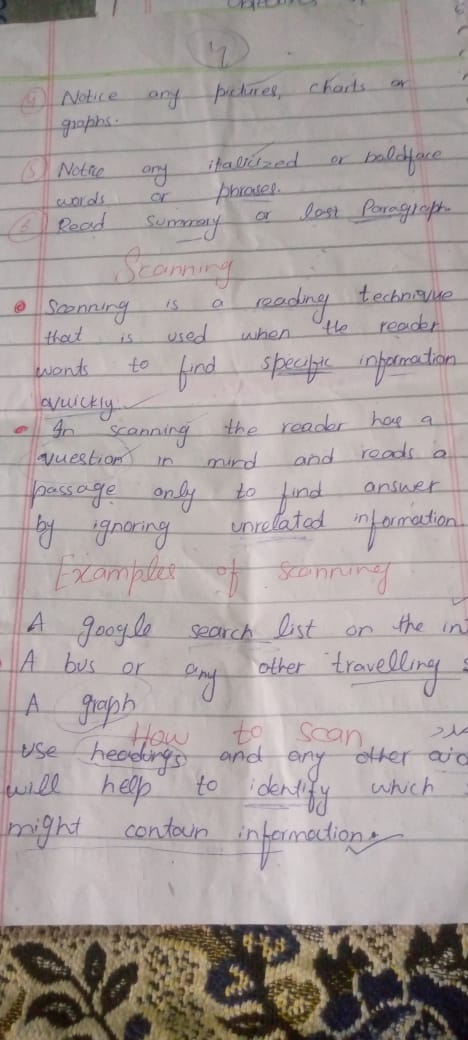 4 Notice any pictures, charts or
graphs.
5 Notice any italicized or boldface
words or phrases.
6 Read summary or last Paragraph
Scanning
Scanning is a reading technique
that is used when the reader
wants to find specific information
quickly
In scanning the reader has a
question in mind and reads a
passage only to find answer
by ignoring unrelated information
Examples of scanning
A google search list on the in
A bus or any other travelling s
A graph
How to scan
use headings and any other aid
will help to identify which
might contain information.